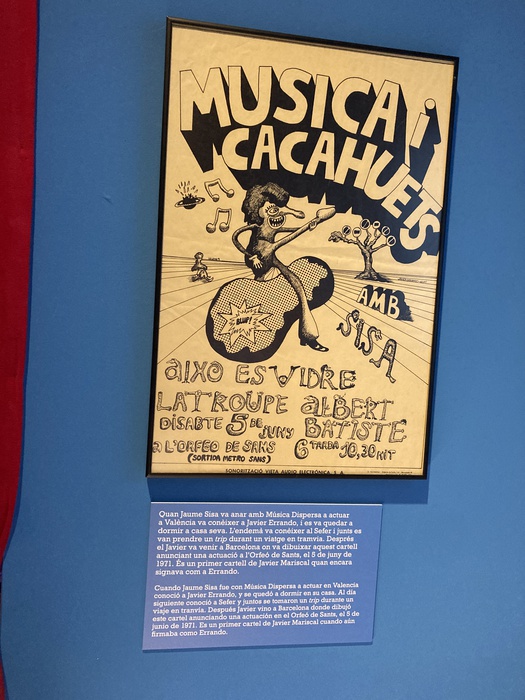 MUSICA i
CACAHUETS
AMB
SISA
BLUF!
AIXO ES VIDRE
LATROUPE ALBERT
DISABTE 5 DE JUNY BATISTE
A L'ORFEO DE SANS 6 TARDA 10,30 NIT
(SORTIDA METRO SANS)
SONORITZACIÓ VIETA AUDIO ELECTRÓNICA, S. A.
Quan Jaume Sisa va anar amb Música Dispersa a actuar
a València va conèixer a Javier Errando, i es va quedar a
dormir a casa seva. L'endemà va conèixer al Sefer i junts es
van prendre un trip durant un viatge en tramvia. Després
el Javier va venir a Barcelona on va dibuixar aquest cartell
anunciant una actuació a l'Orfeó de Sants, el 5 de juny de
1971. És un primer cartell de Javier Mariscal quan encara
signava com a Errando.
Cuando Jaume Sisa fue con Música Dispersa a actuar en Valencia
conoció a Javier Errando, y se quedó a dormir en su casa. Al día
siguiente conoció a Sefer y juntos se tomaron un trip durante un
viaje en tranvía. Después Javier vino a Barcelona donde dibujó
este cartel anunciando una actuación en el Orfeó de Sants, el 5 de
junio de 1971. Es un primer cartel de Javier Mariscal cuando aún
firmaba como Errando.